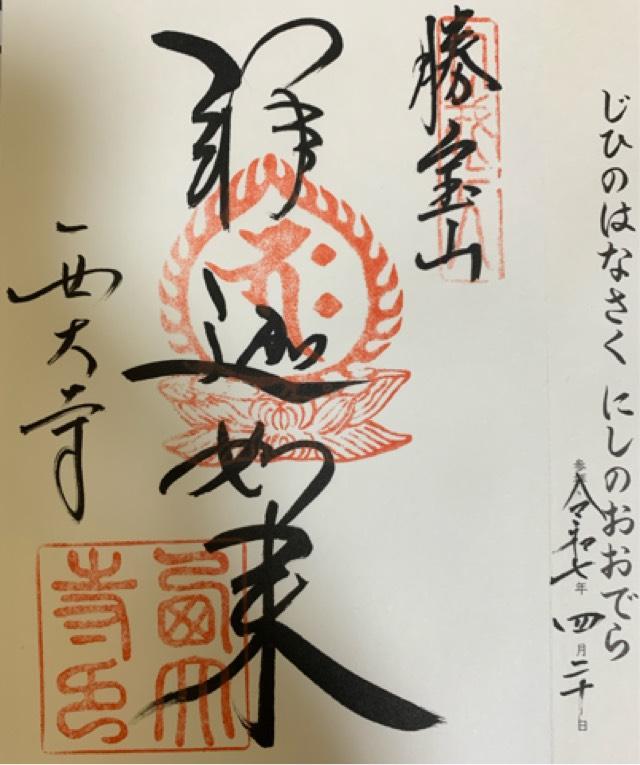 じひのはなさく にしのおおでら
参拝 令和七年 四月二十日
勝宝山
釋迦如来
西大寺
西大寺印